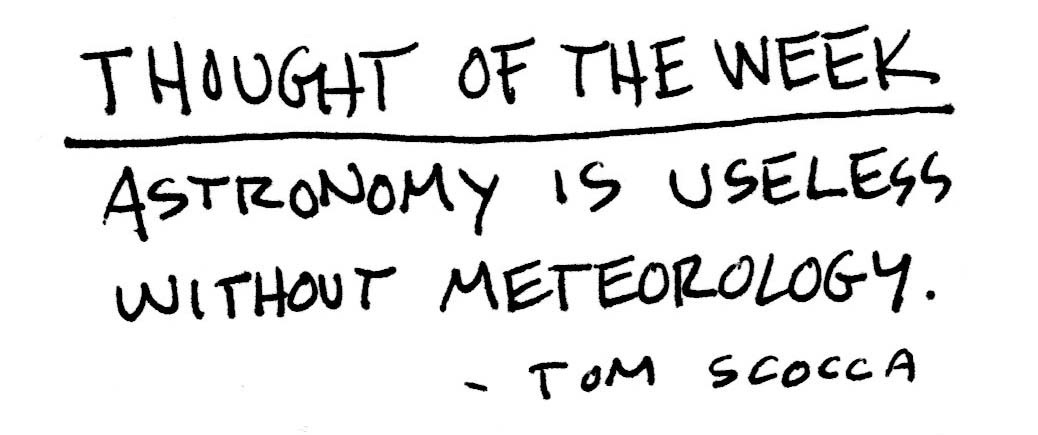 THOUGHT OF THE WEEK
ASTRONOMY IS USELESS
WITHOUT METEOROLOGY.
- TOM SCOCCA